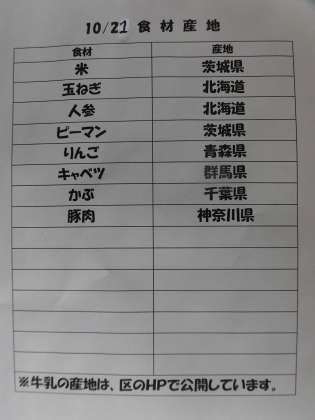 10/21 食材産地
食材 産地
米 茨城県
玉ねぎ 北海道
人参 北海道
ピーマン 茨城県
りんご 青森県
キャベツ 群馬県
かぶ 千葉県
豚肉 神奈川県
※牛乳の産地は、区のHPで公開しています。